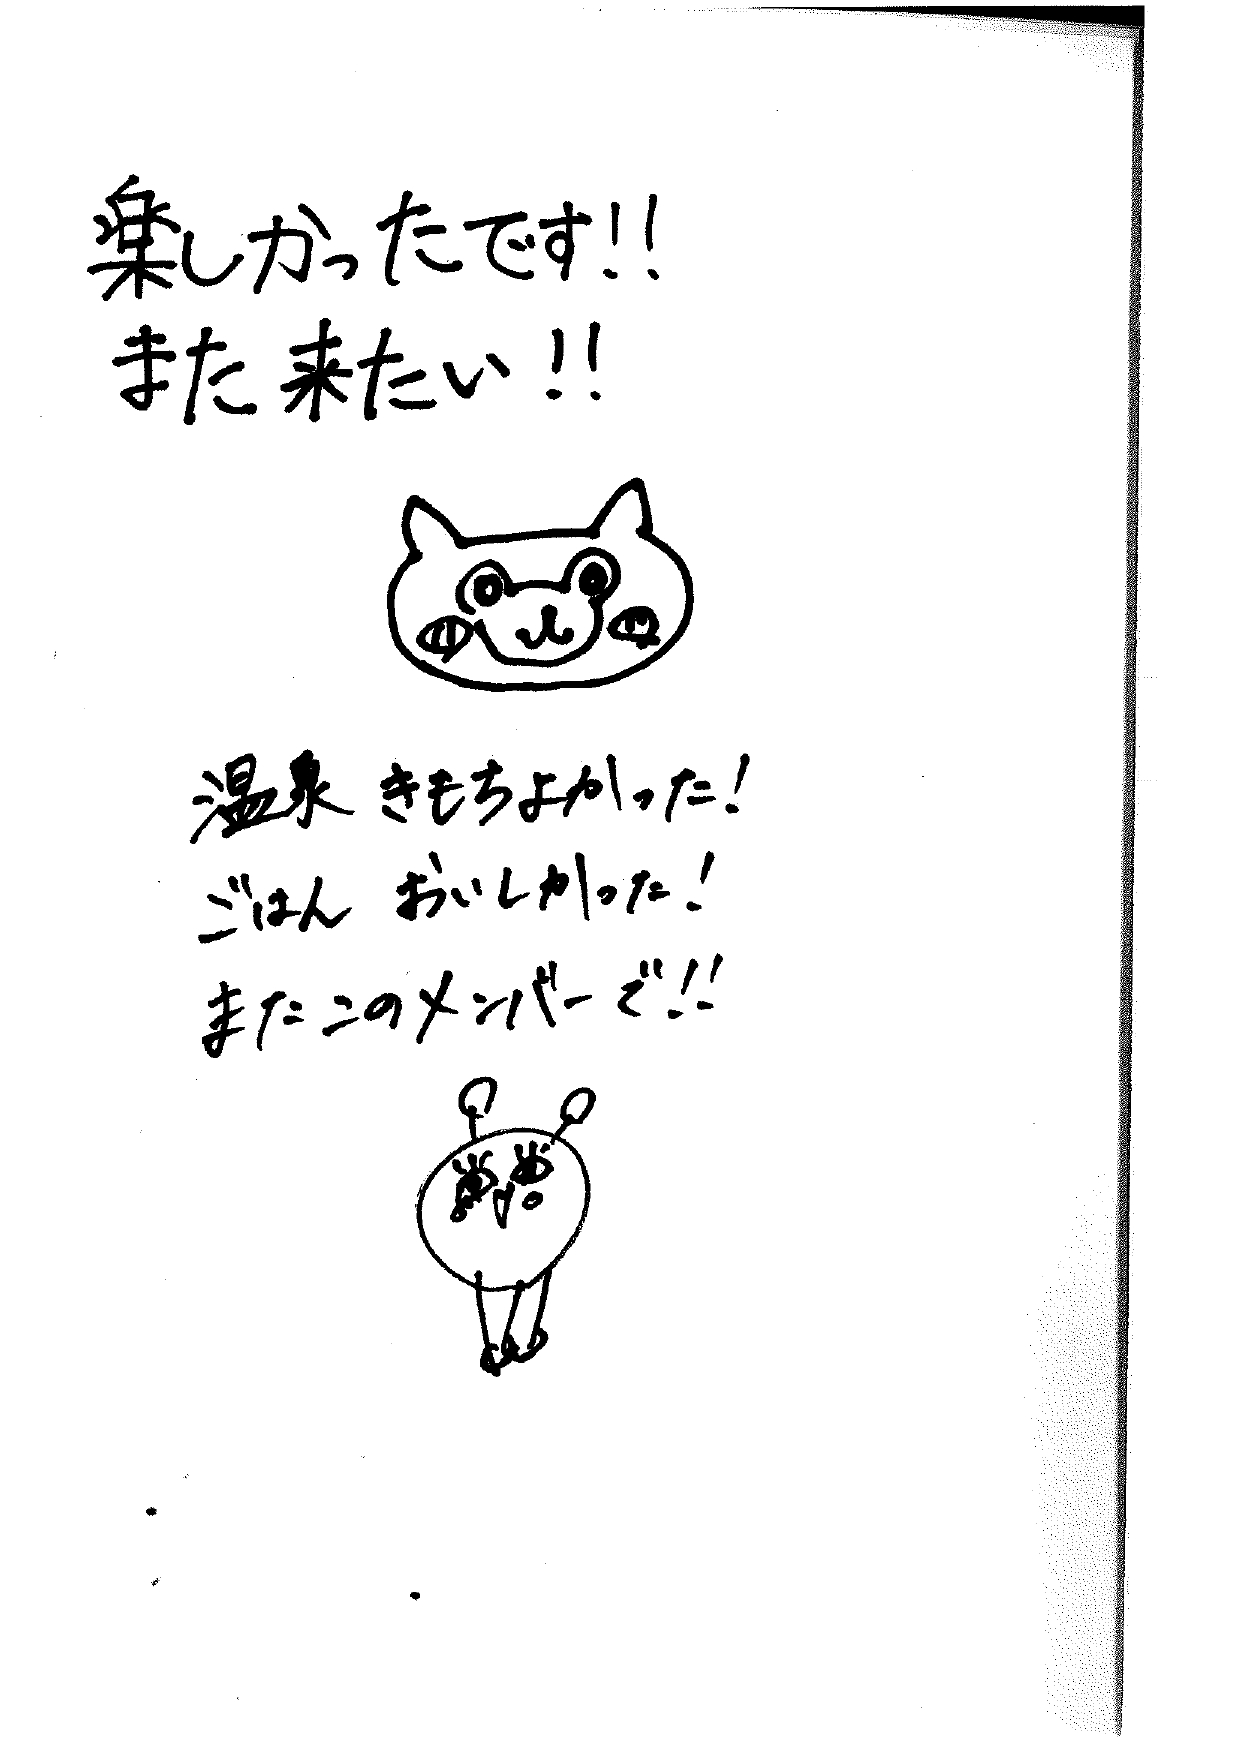 楽しかったです!!
また来たい!!
温泉 きもちよかった!
ごはん おいしかった!
またこのメンバーで!!